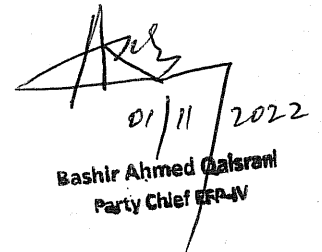 01/11/2022
Bashir Ahmed Qaisrani
Party Chief EFP-IV